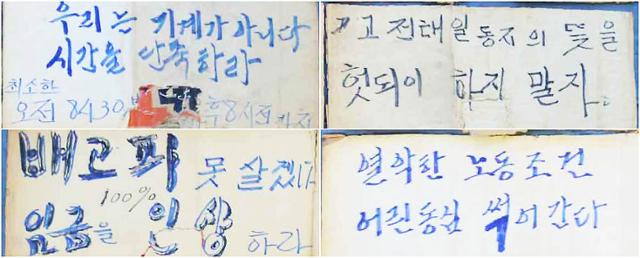 우리는 기계가 아니다
시간을 단축하라
최소한
오전 8시30분부터 오후8시전까지
故 고 전태일 동지의 뜻을
헛되이 하지 말자.
배고파 못 살겠다
100%
임금을 인상 하라
열악한 노동조건
어린동심 썩어간다